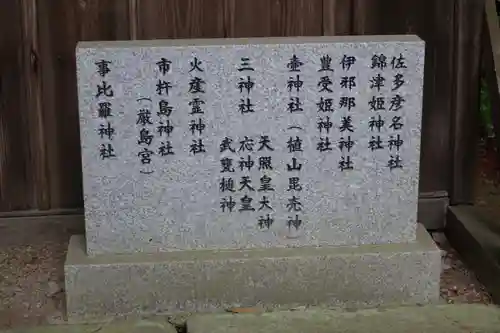 佐多彦名神社
錦津姫神社
伊邪那美神社
豊受姫神社
壺神社(植山毘売神)
三神社
天照皇大神
応神天皇
武甕槌神
火産霊神社
市杵島神社
(厳島宮)
事比羅神社